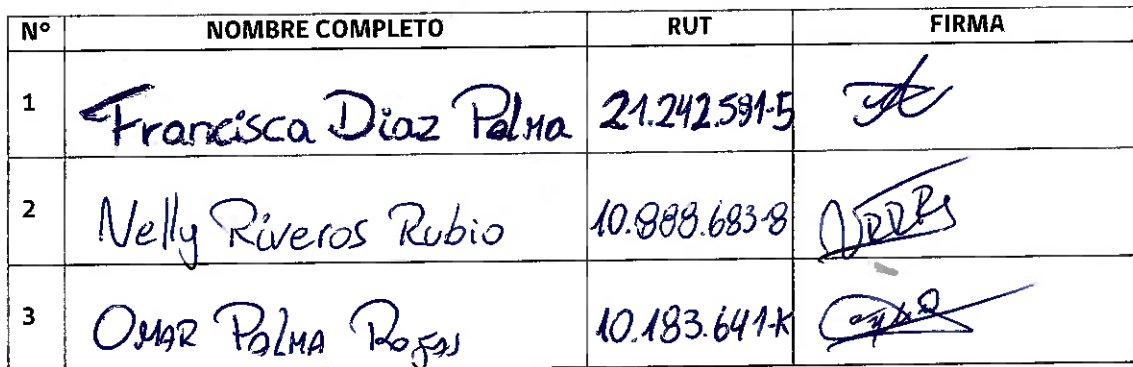 N° NOMBRE COMPLETO RUT FIRMA
1 Francisca Diaz Palma 21.242.591-5
2 Nelly Riveros Rubio 10.888.683-8
3 OMAR PALMA Rojas 10.183.641-K